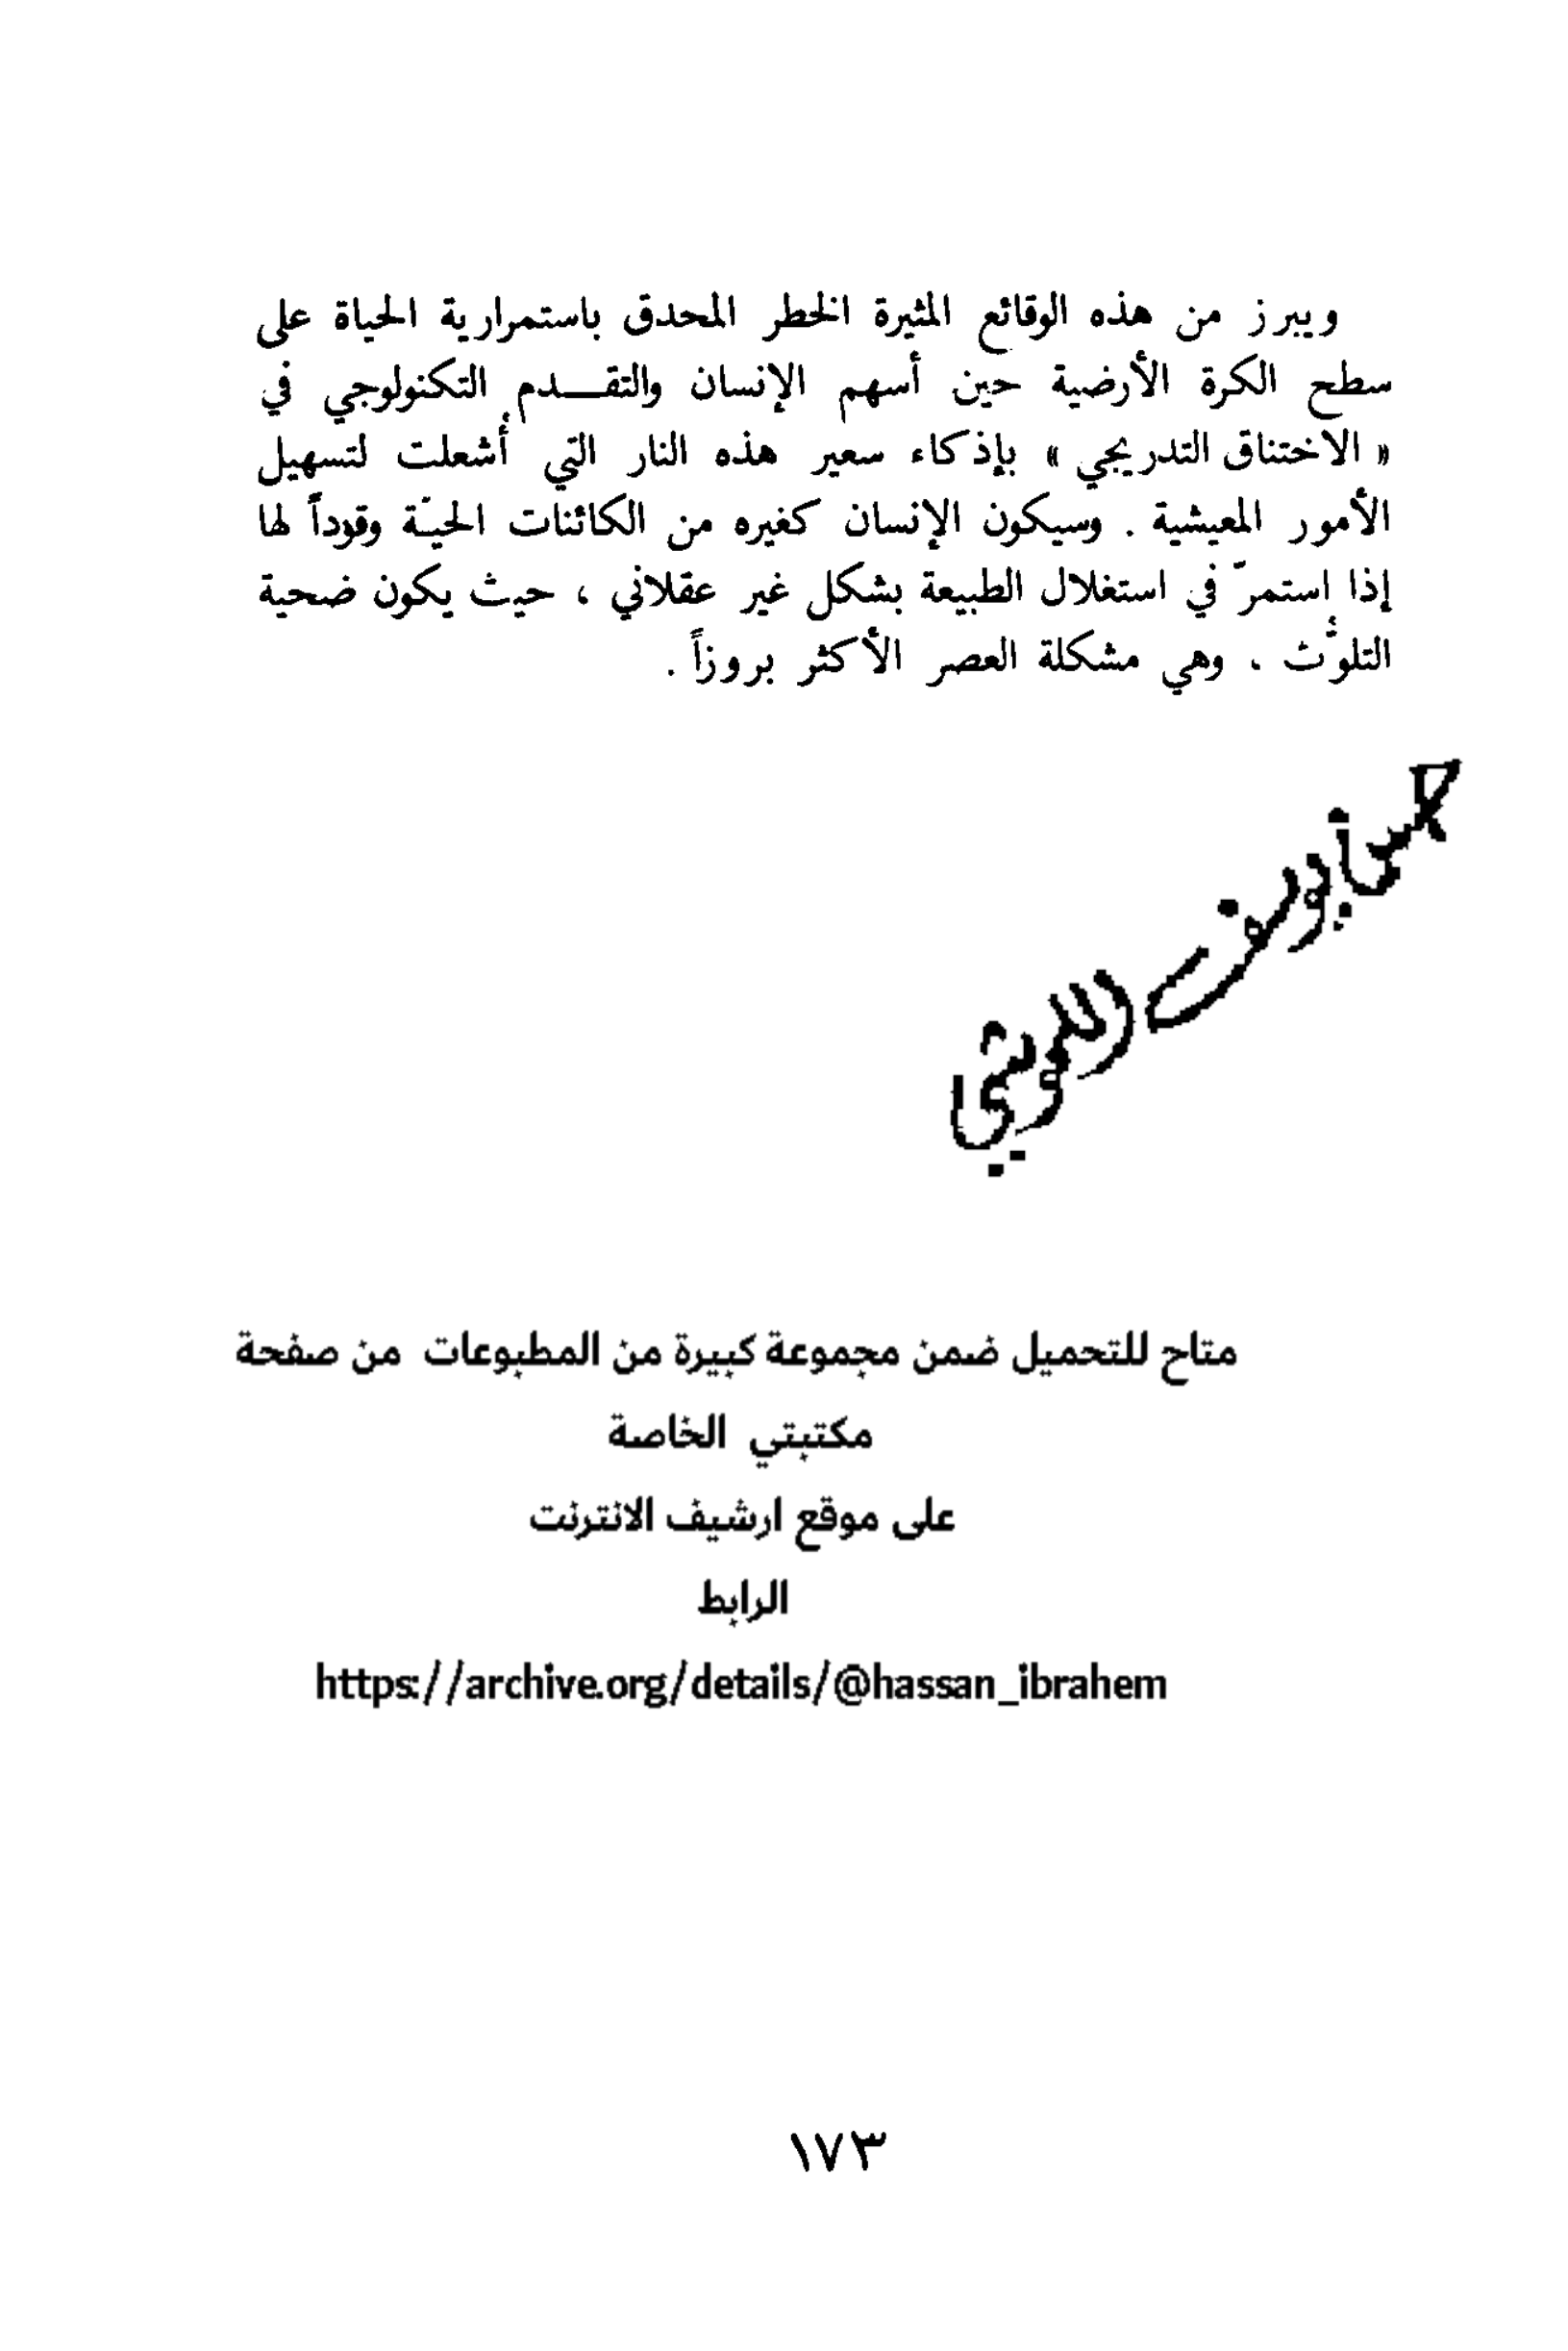 ويبرز من هذه الوقائع المثيرة الخطر المحدق باستمرارية الحياة على
سطح الكرة الأرضية حين أسهم الإنسان والتقـــدم التكنولوجي في
« الاختناق التدريجي » بإذكاء سعير هذه النار التي أُشعلت لتسهيل
الأمور المعيشية . وسيكون الإنسان كغيره من الكائنات الحيّة وقوداً لها
إذا إستمرّ في استغلال الطبيعة بشكل غير عقلاني ، حيث يكون ضحية
التلوُّث ، وهي مشكلة العصر الأكثر بروزاً .
متاح للتحميل ضمن مجموعة كبيرة من المطبوعات من صفحة
مكتبتي الخاصة
على موقع ارشيف الانترنت
الرابط
https://archive.org/details/@hassan_ibrahem
١٧٣